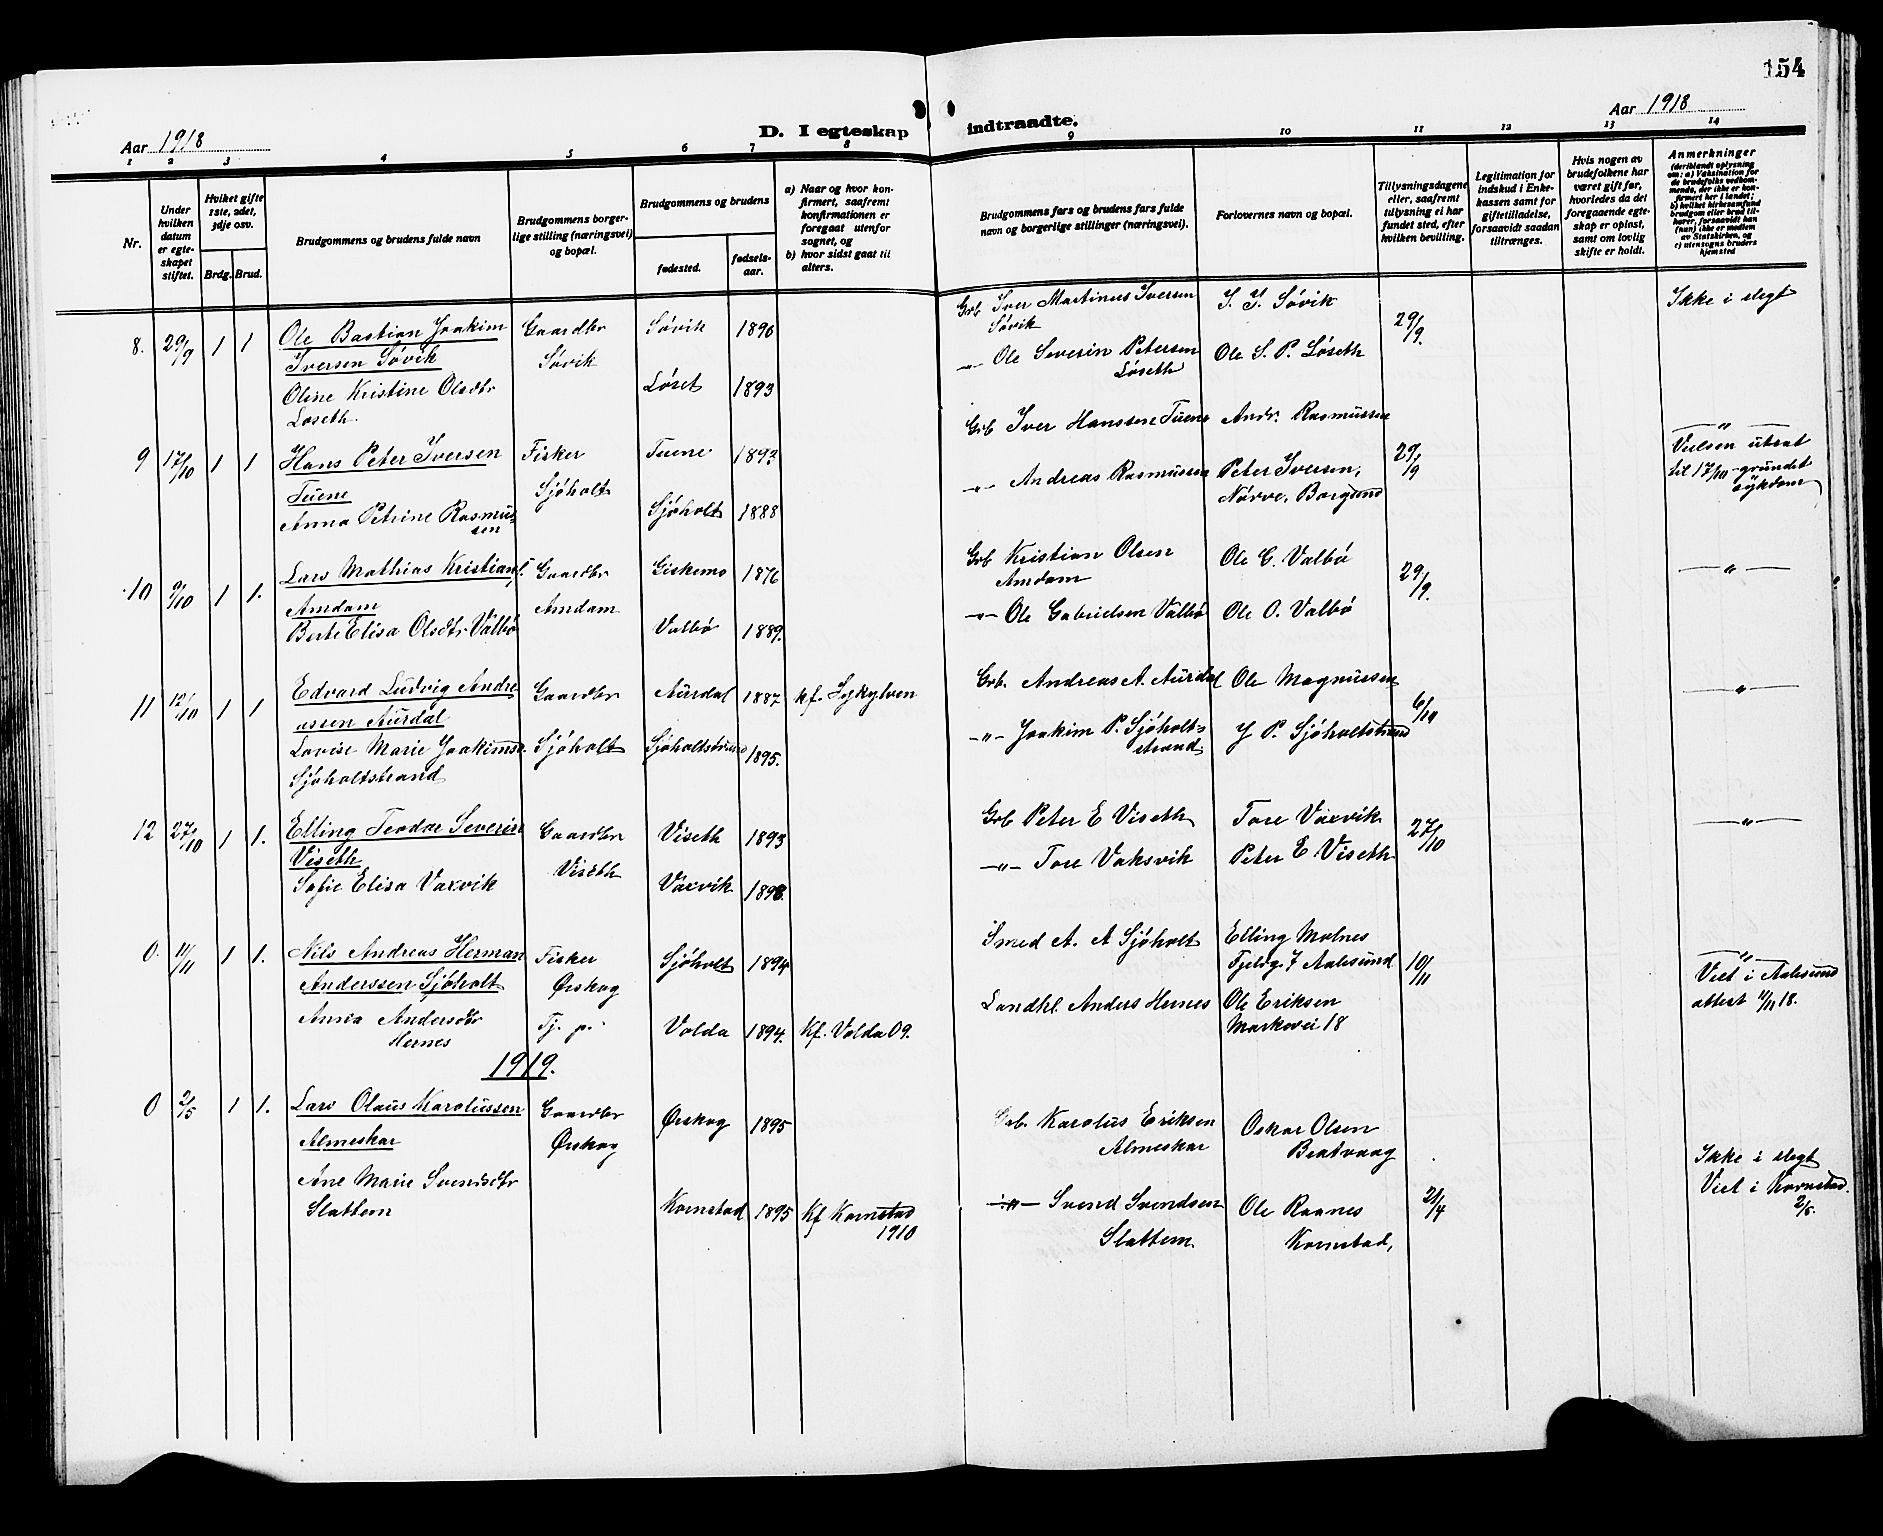 154
Aar 1918
D. I egteskap indtraadte.
Aar 1918
1 2 3 4 5 6 7 8 9 10 11 12 13 14
Nr.
Under hvilken datum er egteskapet stiftet.
Hvilket gifte 1ste, 2det, 3dje osv.
Brdg. Brud.
Brudgommens og brudens fulde navn
Brudgommens borgerlige stilling (næringsvei) og bopæl.
Brudgommens og brudens
fødested.
fødselsaar.
a) Naar og hvor konfirmert, saafremt konfirmationen er foregaat utenfor sognet, og
b) hvor sidst gaat til alters.
Brudgommens fars og brudens fars fulde navn og borgerlige stillinger (næringsvei).
Forlovernes navn og bopæl.
Tillysningsdagene eller, saafremt tillysning ei har fundet sted, efter hvilken bevilling.
Legitimation for indskud i Enkekassen samt for giftetilladelse, forsaavidt saadan tiltrænges.
Hvis nogen av brudefolkene har været gift før, hvorledes da det foregaaende egteskap er opløst, samt om lovlig skifte er holdt.
Anmerkninger
(deriblandt oplysning om: a) Vaksination for de brudefolks vedkommende, der ikke er konfirmert her i landet; b) hvilket kirkesamfund brudgom eller brud tilhører, forsaavidt han (hun) ikke er medlem av Statskirken, og c) utensogns bruders hjemsted
8. 29/9 1 1 Ole Bastian Joakim Gaardbr Søvik 1890
Iversen Søvik Søvik
Oline Kristine Olsdtr Løset 1893
Løseth.
Grb Iver Martinus Iversen S. J. Søvik 29/9. Ikke i slegt
Søvik
-"- Ole Severin Petersen Ole S. P. Løseth
Løseth
9 17/10 1 1 Hans Peter Iversen Fisker Tuene 1892
Tuene Sjøholt
Anna Petrine Rasmussen Sjøholt 1888
Grb Iver Hanssen Tuene Andr. Rasmussen 29/9 -"-
-"- Andreas Rasmussen Peter Iversen,
Nørve, Borgund
Vielsen utsat
til 17/10 grundet
sykdom
10 9/10 1 1. Lars Mathias Kristians. Gaardbr Giskemo 1876
Amdam Amdam
Berte Elisa Olsdtr Valbø Valbø 1889.
Grb Kristian Olsen Ole G. Valbø 29/9. -"-
Amdam
-"- Ole Gabrielsen Valbø Ole O. Valbø
11 12/10 1 1 Edvard Ludvig Andre Gaardbr Aurdal 1887 kf. Sykylven
assen Aurdal
Lovise Marie Joakimsd. Sjøholt Sjøholtstrand 1895.
Sjøholtstrand
Grb. Andreas A. Aurdal Ole Magnussen 6/10 -"-
-"- Joakim P. Sjøholt- J P. Sjøholtstrand
strand
12 27/10 1 1. Elling Teodor Severin Gaardbr Viseth 1893
Viseth Viseth
Sofie Elisa Vaxvik Vaxvik 1898.
Grb Peter E Viseth Tore Vaxvik 27/10 -"-
-"- Tore Vaksvik Peter E Viseth
0. 11/11 1 1. Nils Andreas Herman Fisker Sjøholt 1894
Anderssen Sjøholt Ørskog
Anna Andersdtr Tj. pi. Volda 1894. Kf. Volda 09.
Hernes
Smed A. A Sjøholt Elling Molnes 10/11 -"-
Fjeldg. 7 Aalesund
Landhl. Anders Hernes Ole Eriksen
Markvei 18
Viet i Aalesund
attest 11/11 18.
1919.
0 2/5 1 1. Lars Olaus Karolussen Gaardbr Ørskog 1895
Almeskar Ørskog
Ane Marie Svendsdtr
Slattem Kornstad 1895 Kf Kornstad
1910
Grb. Karolus Eriksen Oskar Olsen
Almeskar Bratvaag
-"- Svend Svendsen Ole Raanes 21/4
Slattem Kornstad,
Ikke i slegt
Viet i Kornstad.
2/5.